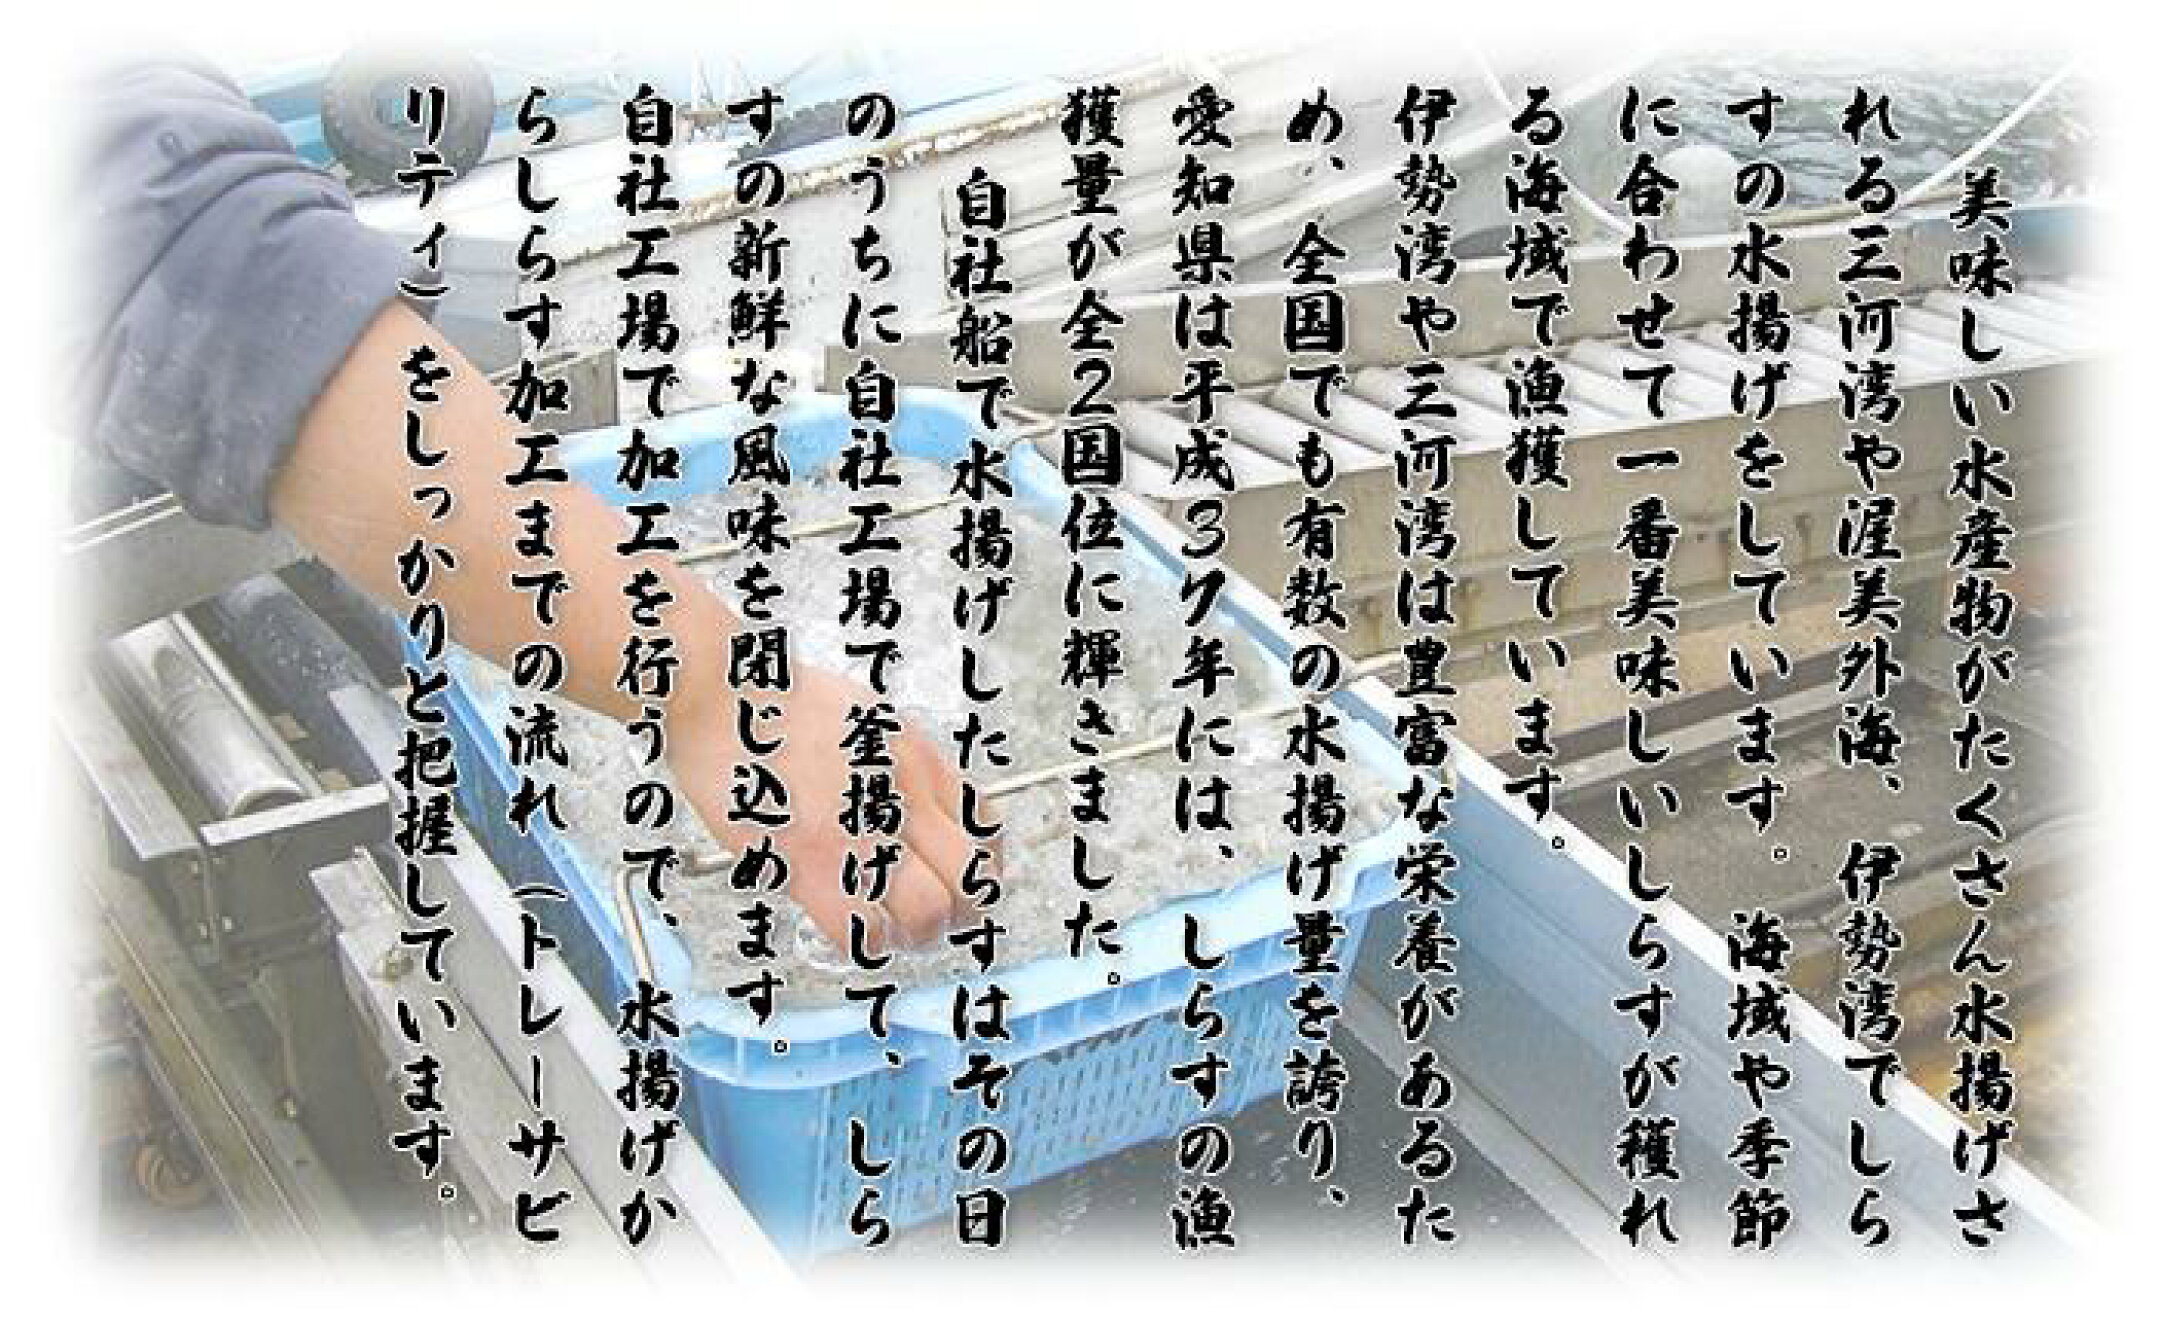 美味しい水産物がたくさん水揚げさ
れる三河湾や渥美外海、伊勢湾でしら
すの水揚げをしています。海域や季節
に合わせて一番美味しいしらすが穫れ
る海域で漁獲しています。
伊勢湾や三河湾は豊富な栄養があるた
め、全国でも有数の水揚げ量を誇り、
愛知県は平成37年には、しらすの漁
獲量が全2国位に輝きました。
自社船で水揚げしたしらすはその日
のうちに自社工場で釜揚げして、しら
すの新鮮な風味を閉じ込めます。
自社工場で加工を行うので、水揚げか
らしらす加工までの流れ（トレーサビ
リティ）をしっかりと把握しています。